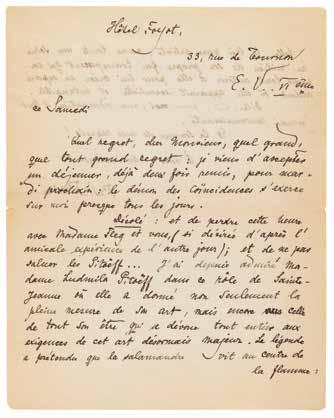 Hôtel Foyot,
33, rue de Tournon
E. V. VI ème
ce Samedi
Quel regret, cher Monsieur, quel grand,
que tout grand regret : je viens d'accepter
un déjeuner, déjà deux fois remis, pour mar-
di prochain : le démon des coïncidences s'exerce
sur moi presque tous les jours.
Désolé : et de perdre cette heure
avec Madame et vous, (si désirée d'après l'
amicale expérience de l'autre jour) ; et de ne pas
saluer les Pitoëff... J'ai depuis admiré Ma-
dame Ludmila Pitoëff dans ce rôle de Sainte-
Jeanne où elle a donné non seulement la
pleine mesure de son art, mais encore celle
de tout son être qui a dévoué tout entier aux
exigences de cet art désormais majeur. La légende
a prétendu que la salamandre vit au centre de
la flamme :